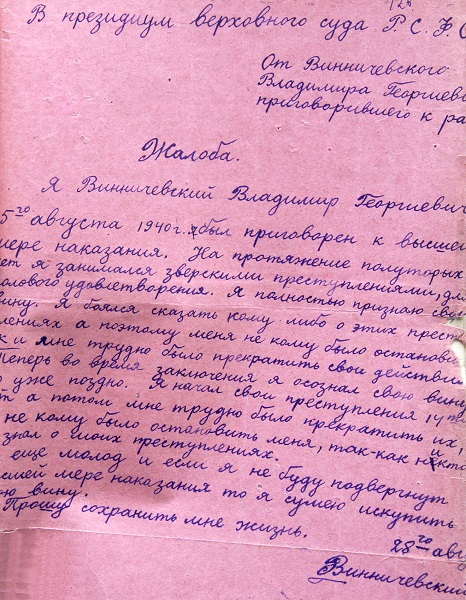 128
В президиум верховного суда Р.С.Ф.С
От Винничевского
Владимира Георгиев
приговорившего к ра
Жалоба.
Я Винничевский Владимир Георгиевич
5го августа 1940г. был приговорен к высшей
мере наказания. На протяжение полуторых
лет я занимался зверскими преступлениями, для
полового удовлетворения. Я полностью признаю свою
вину. Я боялся сказать кому либо о этих прест
лениях а поэтому меня не кому было остановить
к и мне трудно было прекратить свои действия
Теперь во время заключения я осознал свою вину
о уже поздно. Я начал свои преступления
т а потом мне трудно было прекратить их,
не кому было остановить меня, так-как никто
знал о моих преступлениях.
еще молод и если я не буду подвергнут
сшей мере наказания то я сумею искупить
ою вину.
Прошу сохранить мне жизнь.
28го авг
Винничевский